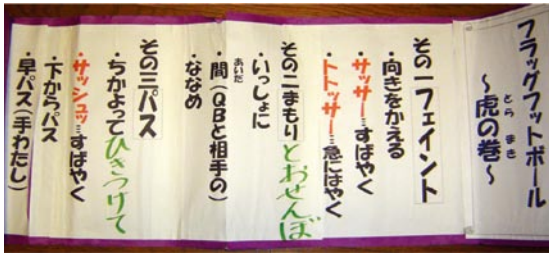 フラッグフットボール
～虎の巻～
とら まき
その一フェイント
・向きをかえる
・サッサー…すばやく
・トトッサー…急にはやく
その二まもりとおせんぼ
・いっしょに
・間(QBと相手の)
あいだ
・ななめ
その三パス
・ちかよってひきつけて
・サッシュッ…すばやく
・下からパス
・早パス(手わたし)